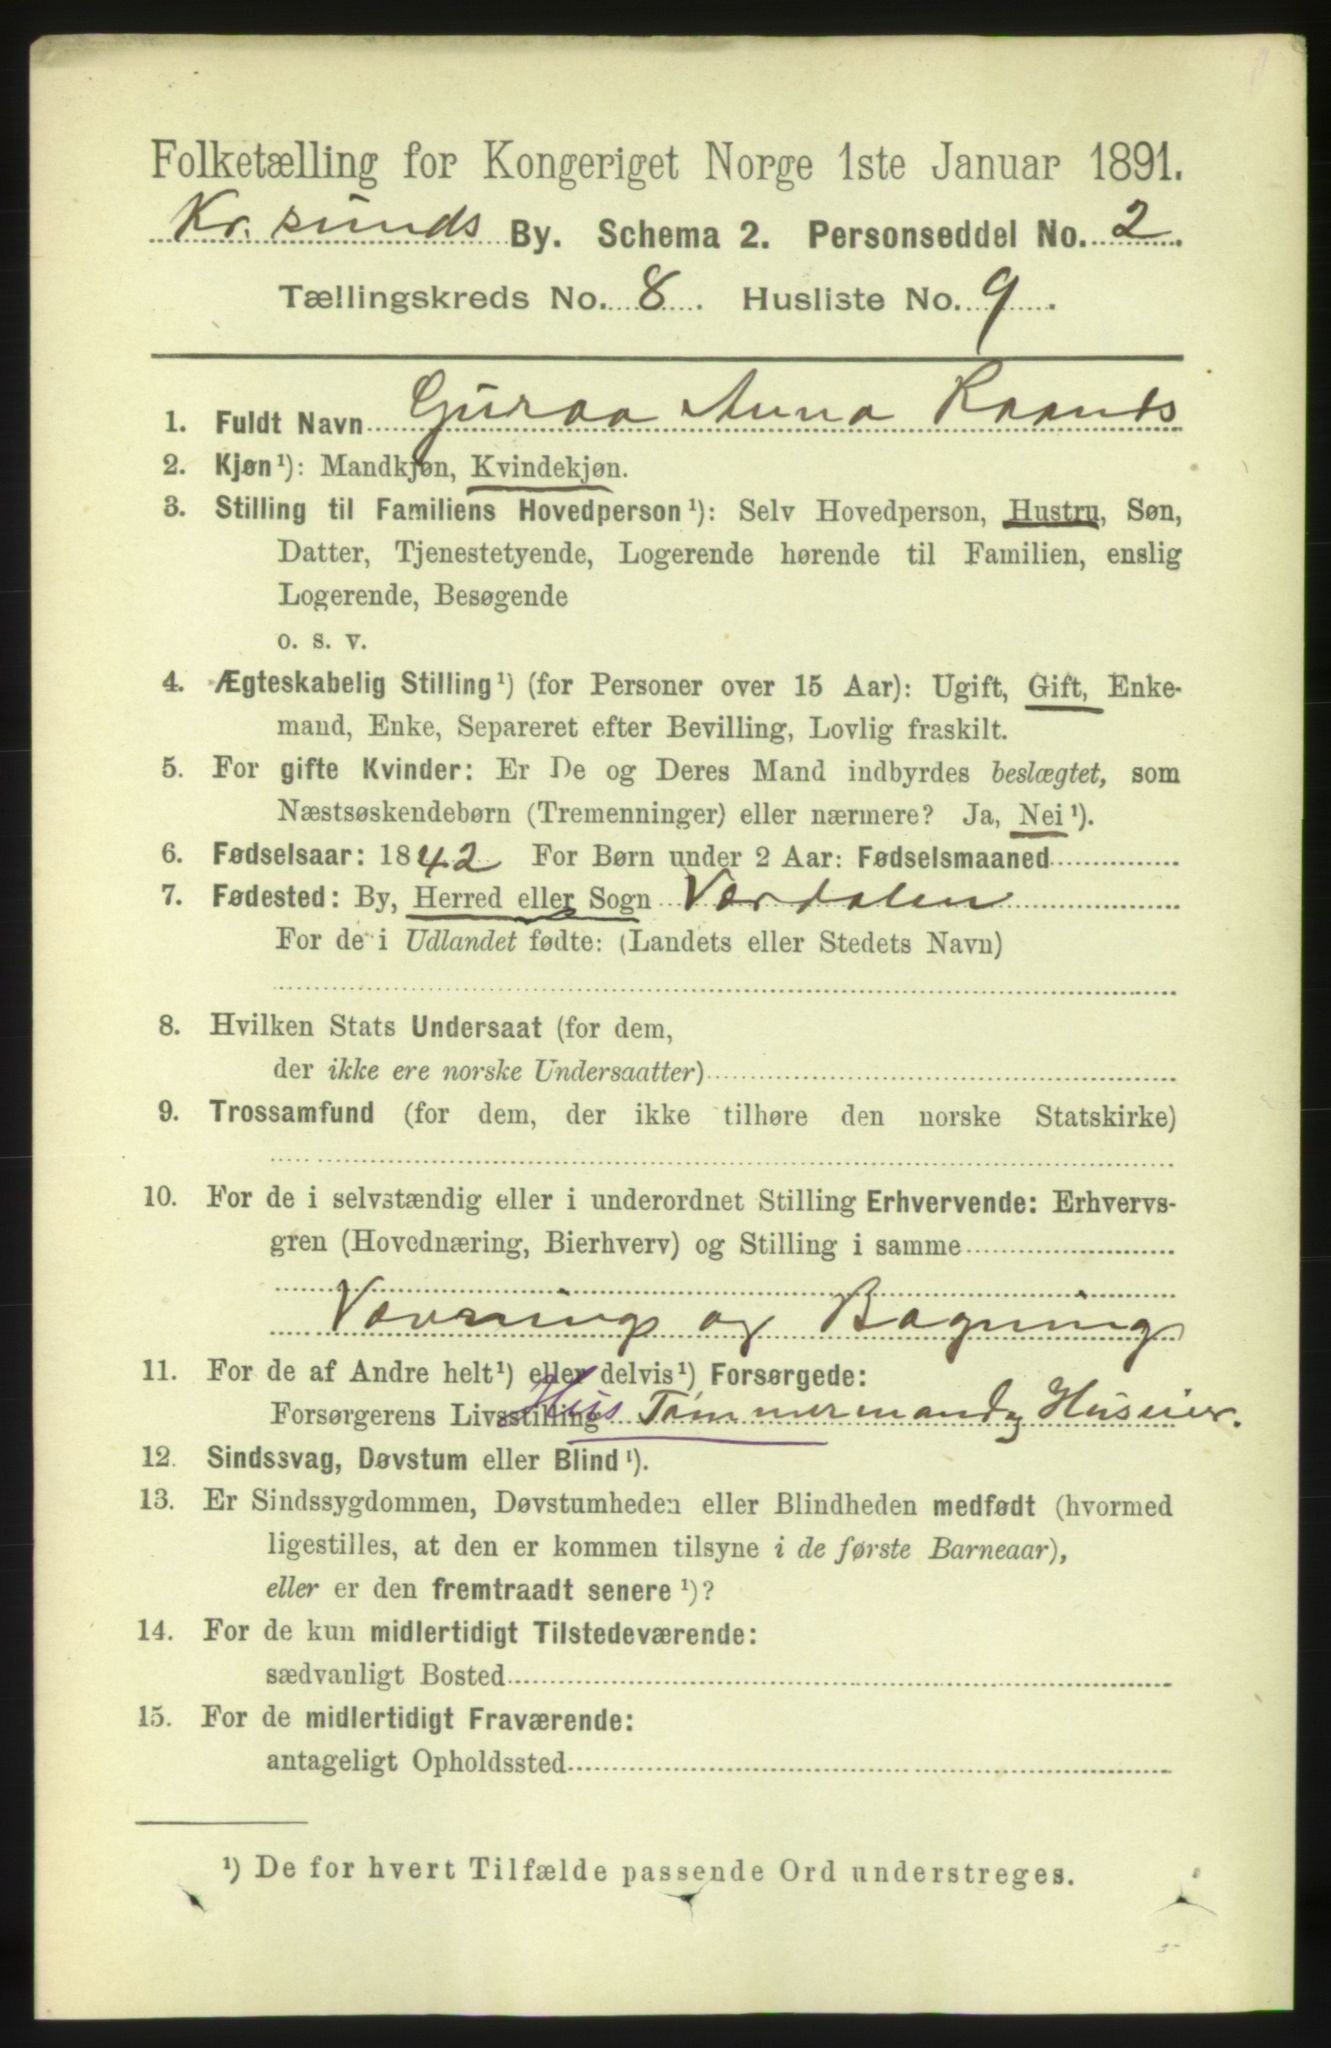 Folketælling for Kongeriget Norge 1ste Januar 1891.
Kr. sunds By. Schema 2. Personseddel No. 2.
Tællingskreds No. 8. Husliste No. 9.
1. Fuldt Navn Guroa Anna Raanes
2. Kjøn ¹): Mandkjøn, Kvindekjøn.
3. Stilling til Familiens Hovedperson ¹): Selv Hovedperson, Hustru, Søn,
Datter, Tjenestetyende, Logerende hørende til Familien, enslig
Logerende, Besøgende
o. s. v.
4. Ægteskabelig Stilling ¹) (for Personer over 15 Aar): Ugift, Gift, Enke-
mand, Enke, Separeret efter Bevilling, Lovlig fraskilt.
5. For gifte Kvinder: Er De og Deres Mand indbyrdes beslægtet, som
Næstsøskendebørn (Tremenninger) eller nærmere? Ja, Nei ¹).
6. Fødselsaar: 1842 For Børn under 2 Aar: Fødselsmaaned
7. Fødested: By, Herred eller Sogn Værdalen
For de i Udlandet fødte: (Landets eller Stedets Navn)
8. Hvilken Stats Undersaat (for dem,
der ikke ere norske Undersaatter)
9. Trossamfund (for dem, der ikke tilhøre den norske Statskirke)
10. For de i selvstændig eller i underordnet Stilling Erhvervende: Erhvervs-
gren (Hovednæring, Bierhverv) og Stilling i samme
Vævning og Bagning
11. For de af Andre helt ¹) eller delvis ¹) Forsørgede:
Forsørgerens Livsstilling Hus Tømmermand og Huseier.
12. Sindssvag, Døvstum eller Blind ¹).
13. Er Sindssygdommen, Døvstumheden eller Blindheden medfødt (hvormed
ligestilles, at den er kommen tilsyne i de første Barneaar),
eller er den fremtraadt senere ¹)?
14. For de kun midlertidigt Tilstedeværende:
sædvanligt Bosted
15. For de midlertidigt Fraværende:
antageligt Opholdssted
¹) De for hvert Tilfælde passende Ord understreges.